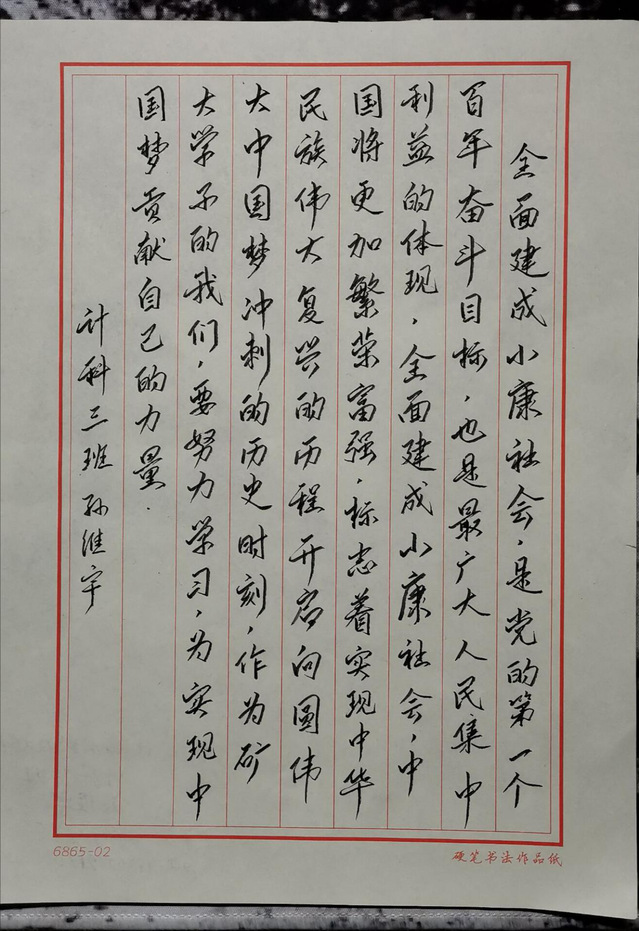 全面建成小康社会，是党的第一个
百年奋斗目标，也是最广大人民集中
利益的体现，全面建成小康社会，中
国将更加繁荣富强，标志着实现中华
民族伟大复兴的历程开启向圆伟
大中国梦冲刺的历史时刻，作为矿
大学子的我们，要努力学习，为实现中
国梦贡献自己的力量．
计科三班 孙维宇
6865-02
硬笔书法作品纸